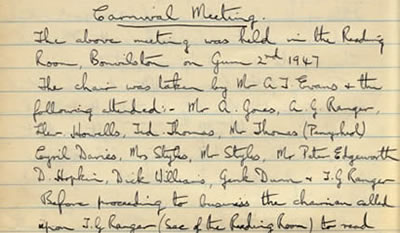 Carnival Meeting.
The above meeting was held in the Reading
Room, Bonvilston on June 2nd 1947
The chair was taken by Mr A I Evans & the
following attended:- Mr A. Jones, A G Ranger,
Howells, Ind. Thomas, Mr Thomas (Pamphiol)
Cyril Davies, Mrs Styles, Mr Styles, Mr Peter Edgeworth
D. Hopkin, Dick Williams, Dunn & I. G Ranger
Before proceeding to business the chairman called
upon I. G Ranger (Sec of the Reading Room) to read